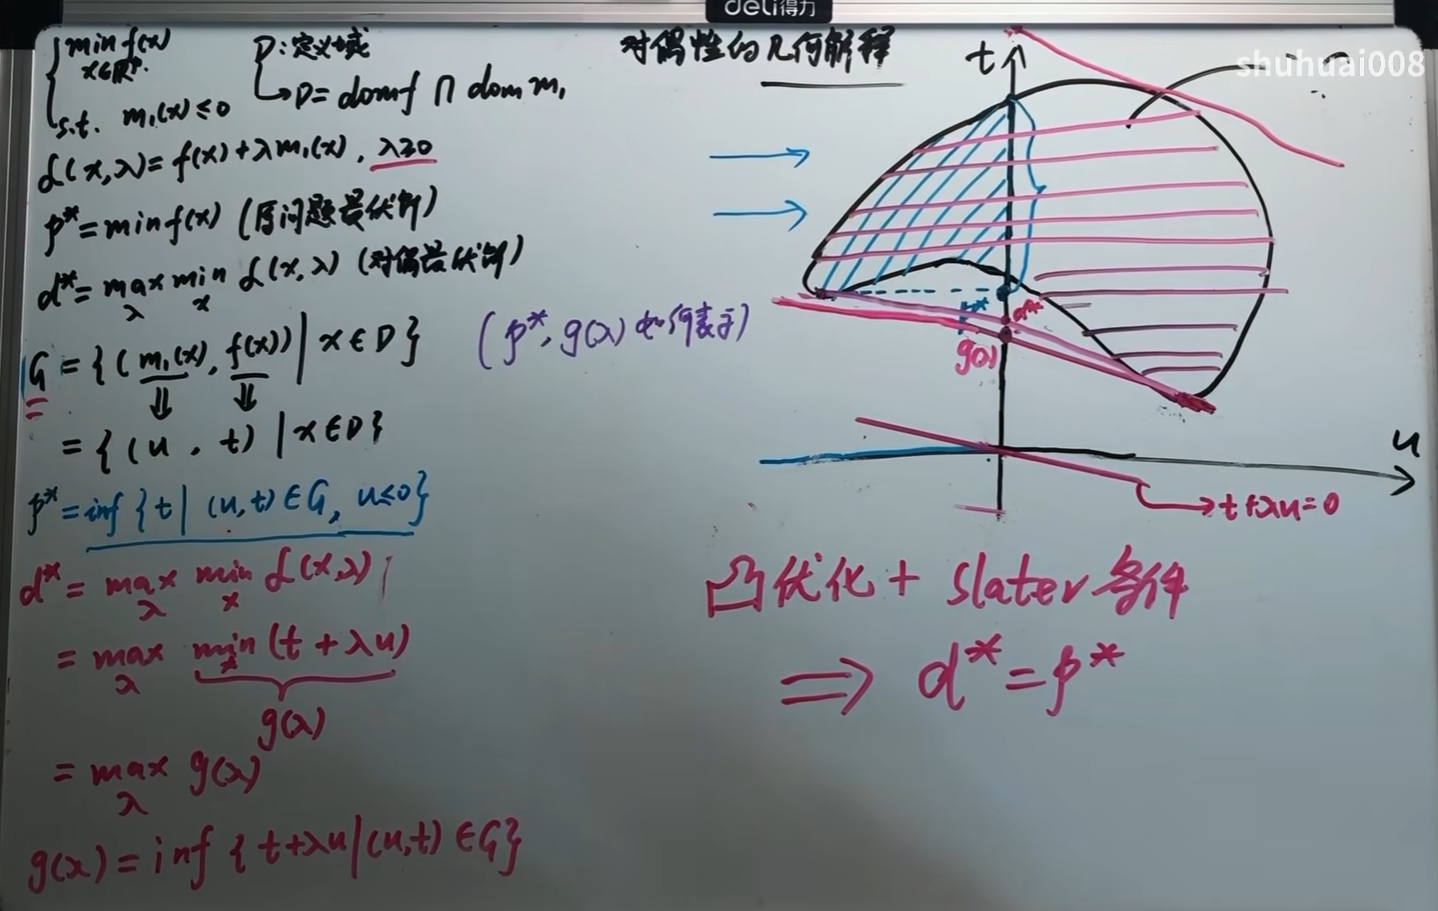 deli得力
shuhuai008
min f(x)
x∈ℝᵖ
s.t. m₁(x)≤0
D:定义域
D=domf ∩ dom m₁
对偶性的几何解释
L(x,λ)=f(x)+λm₁(x), λ≥0
p*=minf(x) (原问题最优解)
d*=max min L(x,λ) (对偶最优解)
λ x
G={(m₁(x), f(x))|x∈D}
(p*, g(λ)如何表示)
={(u, t)|x∈D}
p*=inf{t|(u,t)∈G, u≤0}
d*=max min L(x,λ)
λ x
=max min(t+λu)
λ x
g(λ)
=max g(λ)
λ
g(λ)=inf{t+λu|(u,t)∈G}
t
p*
d*
g(λ)
u
t+λu=0
凸优化+slater条件
⇒ d*=p*